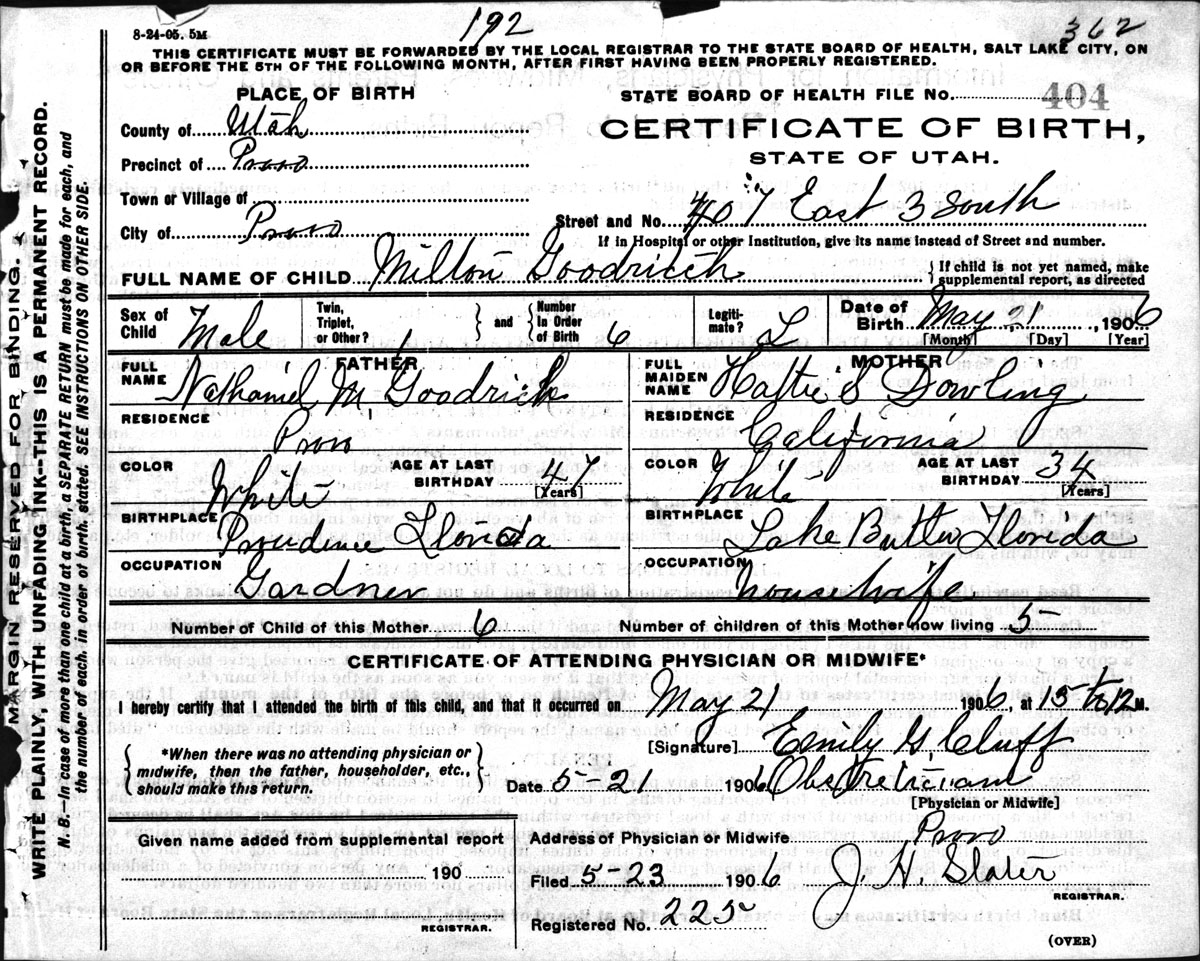 192
362
8-24-05. 5M
THIS CERTIFICATE MUST BE FORWARDED BY THE LOCAL REGISTRAR TO THE STATE BOARD OF HEALTH, SALT LAKE CITY, ON
OR BEFORE THE 5TH OF THE FOLLOWING MONTH, AFTER FIRST HAVING BEEN PROPERLY REGISTERED.
PLACE OF BIRTH
STATE BOARD OF HEALTH FILE NO. 404
County of Utah
CERTIFICATE OF BIRTH,
Precinct of Provo
STATE OF UTAH.
Town or Village of
City of Provo
Street and No. 407 East 3 South
If in Hospital or other Institution, give its name instead of Street and number.
FULL NAME OF CHILD Milton Goodrich
{If child is not yet named, make
supplemental report, as directed
Sex of Child Male
Twin, Triplet, or Other? 1
and
Number In Order of Birth 6
Legiti-mate? L
Date of Birth May 21, 1906
[Month] [Day] [Year]
FATHER
FULL NAME Nathaniel M Goodrich
MOTHER
FULL MAIDEN NAME Hattie S Dowling
RESIDENCE Provo
RESIDENCE California
COLOR White
AGE AT LAST BIRTHDAY 47
[Years]
COLOR White
AGE AT LAST BIRTHDAY 34
[Years]
BIRTHPLACE Providence Florida
BIRTHPLACE Lake Butler Florida
OCCUPATION Gardner
OCCUPATION Housewife
Number of Child of this Mother 6
Number of children of this Mother now living 5
CERTIFICATE OF ATTENDING PHYSICIAN OR MIDWIFE*
I hereby certify that I attended the birth of this child, and that it occurred on May 21 1906, at 15 to 12 M.
{*When there was no attending physician or
midwife, then the father, householder, etc.,
should make this return.}
[Signature] Emily G Cluff
Date 5-21 1906 Obstretician
[Physician or Midwife]
Given name added from supplemental report
190
REGISTRAR.
Address of Physician or Midwife Provo
Filed 5-23 1906 J. H. Slater
REGISTRAR.
Registered No. 225
(OVER)
MARGIN RESERVED FOR BINDING.
WRITE PLAINLY, WITH UNFADING INK--THIS IS A PERMANENT RECORD.
N. B.--In case of more than one child at a birth, a SEPARATE RETURN must be made for each, and
the number of each, in order of birth, stated. SEE INSTRUCTIONS ON OTHER SIDE.